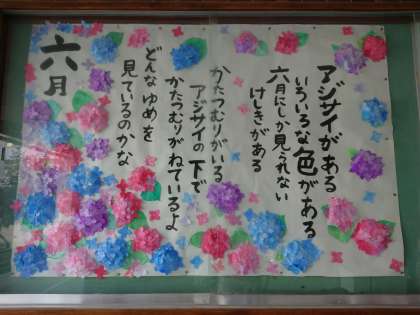 アジサイがある
いろいろな色がある
六月にしか見られない
けしきがある
かたつむりがいる
アジサイの下で
かたつむりがねているよ
どんなゆめを
見ているのかな
六月